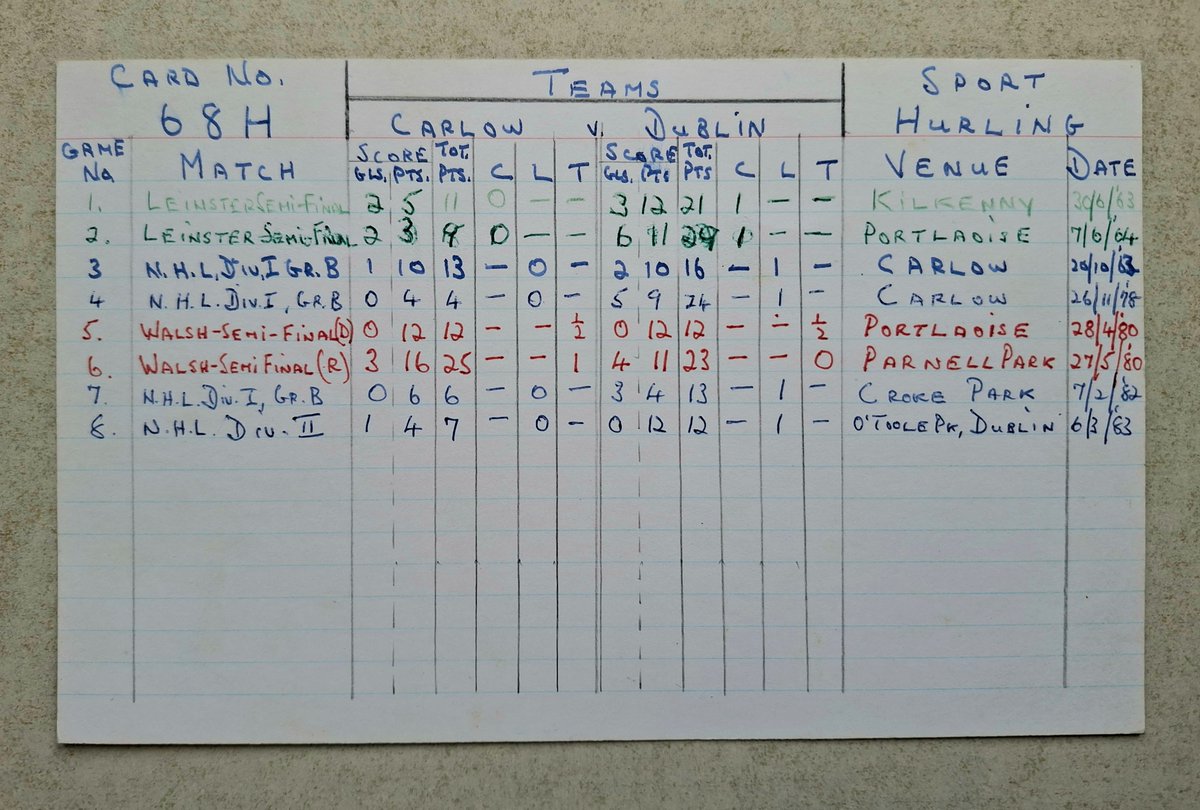 CARD NO. TEAMS SPORT
68H CARLOW v. DUBLIN HURLING
GAME No MATCH SCORE GLS. PTS. TOT. PTS. C L T SCORE GLS. PTS TOT. PTS C L T VENUE DATE
1. LEINSTER SEMI-FINAL 2 5 11 0 — — 3 12 21 1 — — KILKENNY 30/6/'63
2. LEINSTER SEMI-FINAL 2 3 9 0 — — 6 11 29 1 — — PORTLAOISE 7/6/'64
3 N.H.L, DIV, I GR. B 1 10 13 — 0 — 2 10 16 — 1 — CARLOW
4 N.H.L. DIV. I, GR. B 0 4 4 — 0 — 5 9 24 — 1 — CARLOW 26/11/'78
5. WALSH-SEMI-FINAL(D) 0 12 12 — — ½ 0 12 12 — — ½ PORTLAOISE 28/4/'80
6. WALSH-SEMIFINAL(R) 3 16 25 — — 1 4 11 23 — — 0 PARNELL PARK 27/5/'80
7 N.H.L. DIV. I, GR. B 0 6 6 — 0 — 3 4 13 — 1 — CROKE PARK 7/2/'82
8. N.H.L. DIV. II 1 4 7 — 0 — 0 12 12 — 1 — O'TOOLE PK, DUBLIN 6/3/'83